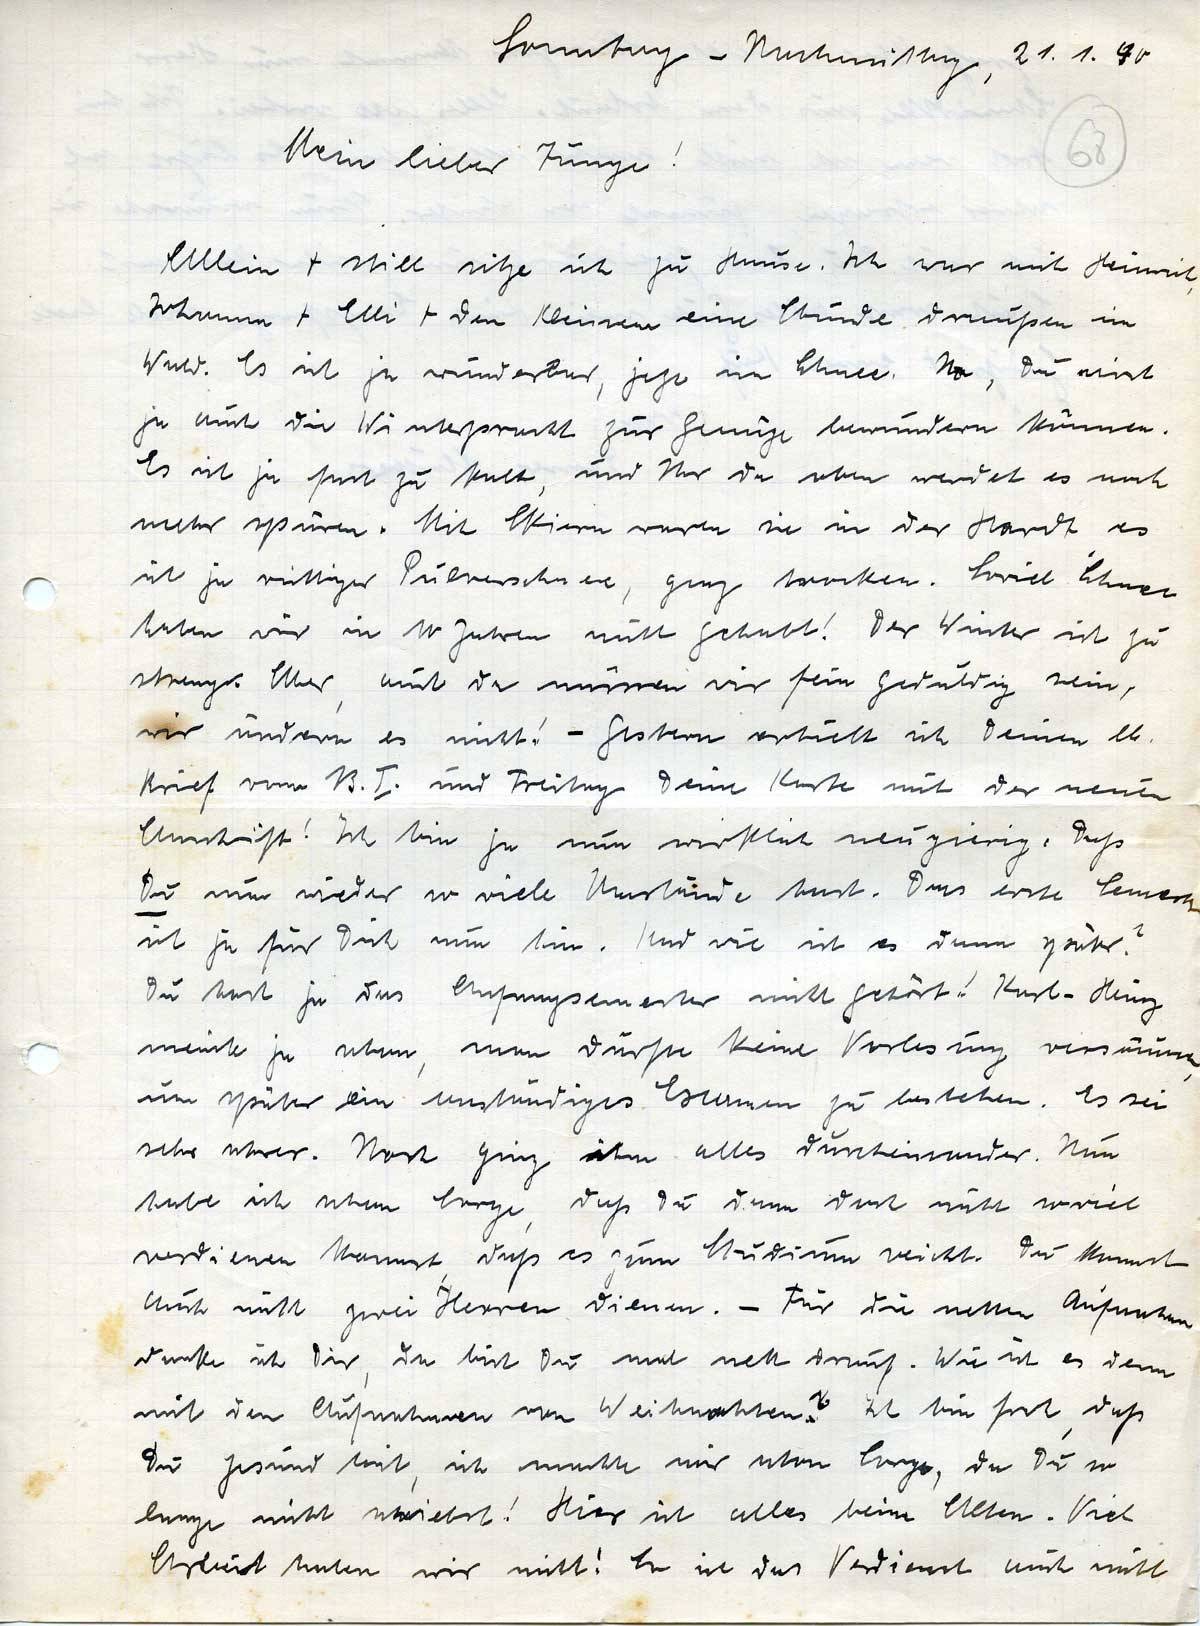 Sonntag - Nachmittag, 21. 1. 40
68
Mein lieber Junge!
Allein + still sitze ich zu Hause. Ich war mit Heinrich,
Johanna + Elli + den Kleinen eine Stunde draußen im
Wald. Es ist ja wunderbar, jetzt im Schnee. Na, Du wirst
ja auch die Winterpracht zur Genüge bewundern können.
Es ist ja fast zu kalt, und Ihr da oben werdet es noch
mehr spüren. Mit Skiern waren sie in der Hardt es
ist ja richtiger Pulverschnee, ganz trocken. Soviel Schnee
haben wir in 10 Jahren nicht gehabt! Der Winter ist zu
streng. Aber, auch da müssen wir fein geduldig sein,
wir ändern es nicht! - Gestern erhielt ich Deinen lb.
Brief vom 13. I. und Freitag Deine Karte mit der neuen
Anschrift! Ich bin ja nun wirklich neugierig. Daß
Du nun wieder so viele Umstände hast. Das erste Semester
ist ja für Dich nun hin. Und wie ist es dann später?
Du hast ja das Anfangsemester nicht gehört! Karl-Heinz
meinte ja schon, man dürfte keine Vorlesung versäumen,
um später ein anständiges Examen zu bestehen. Es sei
sehr schwer. Noch ging ihm alles durcheinander. Nun
habe ich schon Sorge, daß Du dann dort nicht soviel
verdienen kannst, daß es zum Studium reicht. Du kannst
auch nicht zwei Herren dienen. - Für die netten Aufnahmen
danke ich Dir, da bist Du mal nett drauf. Wie ist es denn
mit den Aufnahmen von Weihnachten? Ich bin froh, daß
Du gesund bist, ich machte mir schon Sorge, da Du so
lange nicht schriebst! Hier ist alles beim Alten. Viel
Arbeit haben wir nicht! Es ist das Verdienst auch nicht